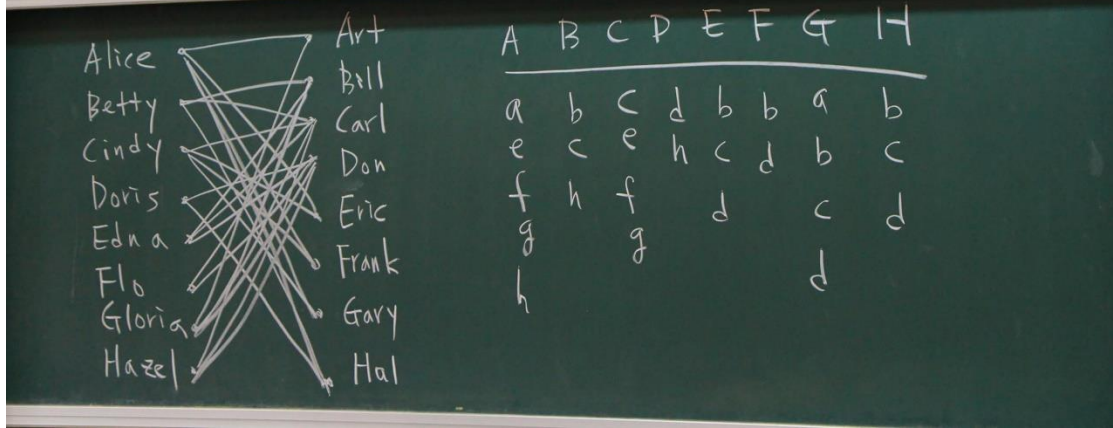 Alice
Betty
Cindy
Doris
Edna
Flo
Gloria
Hazel
Art
Bill
Carl
Don
Eric
Frank
Gary
Hal
A B C D E F G H
a b c d b b a b
e c e h c d b c
f h f d c d
g g d
h